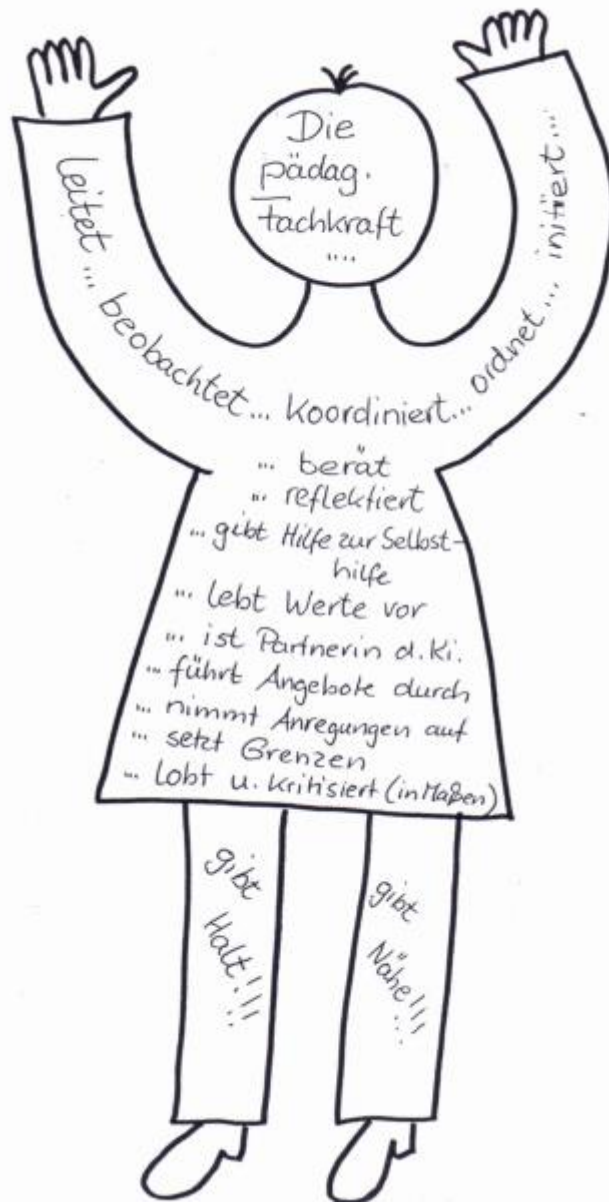 Die
pädag.
Fachkraft
....
leitet... beobachtet... koordiniert... ordnet... initiiert...
... berät
... reflektiert
... gibt Hilfe zur Selbst-
hilfe
... lebt Werte vor
... ist Partnerin d. Ki.
... führt Angebote durch
... nimmt Anregungen auf
... setzt Grenzen
... lobt u. kritisiert (in Maßen)
gibt
Halt!!!
gibt
Nähe!!!